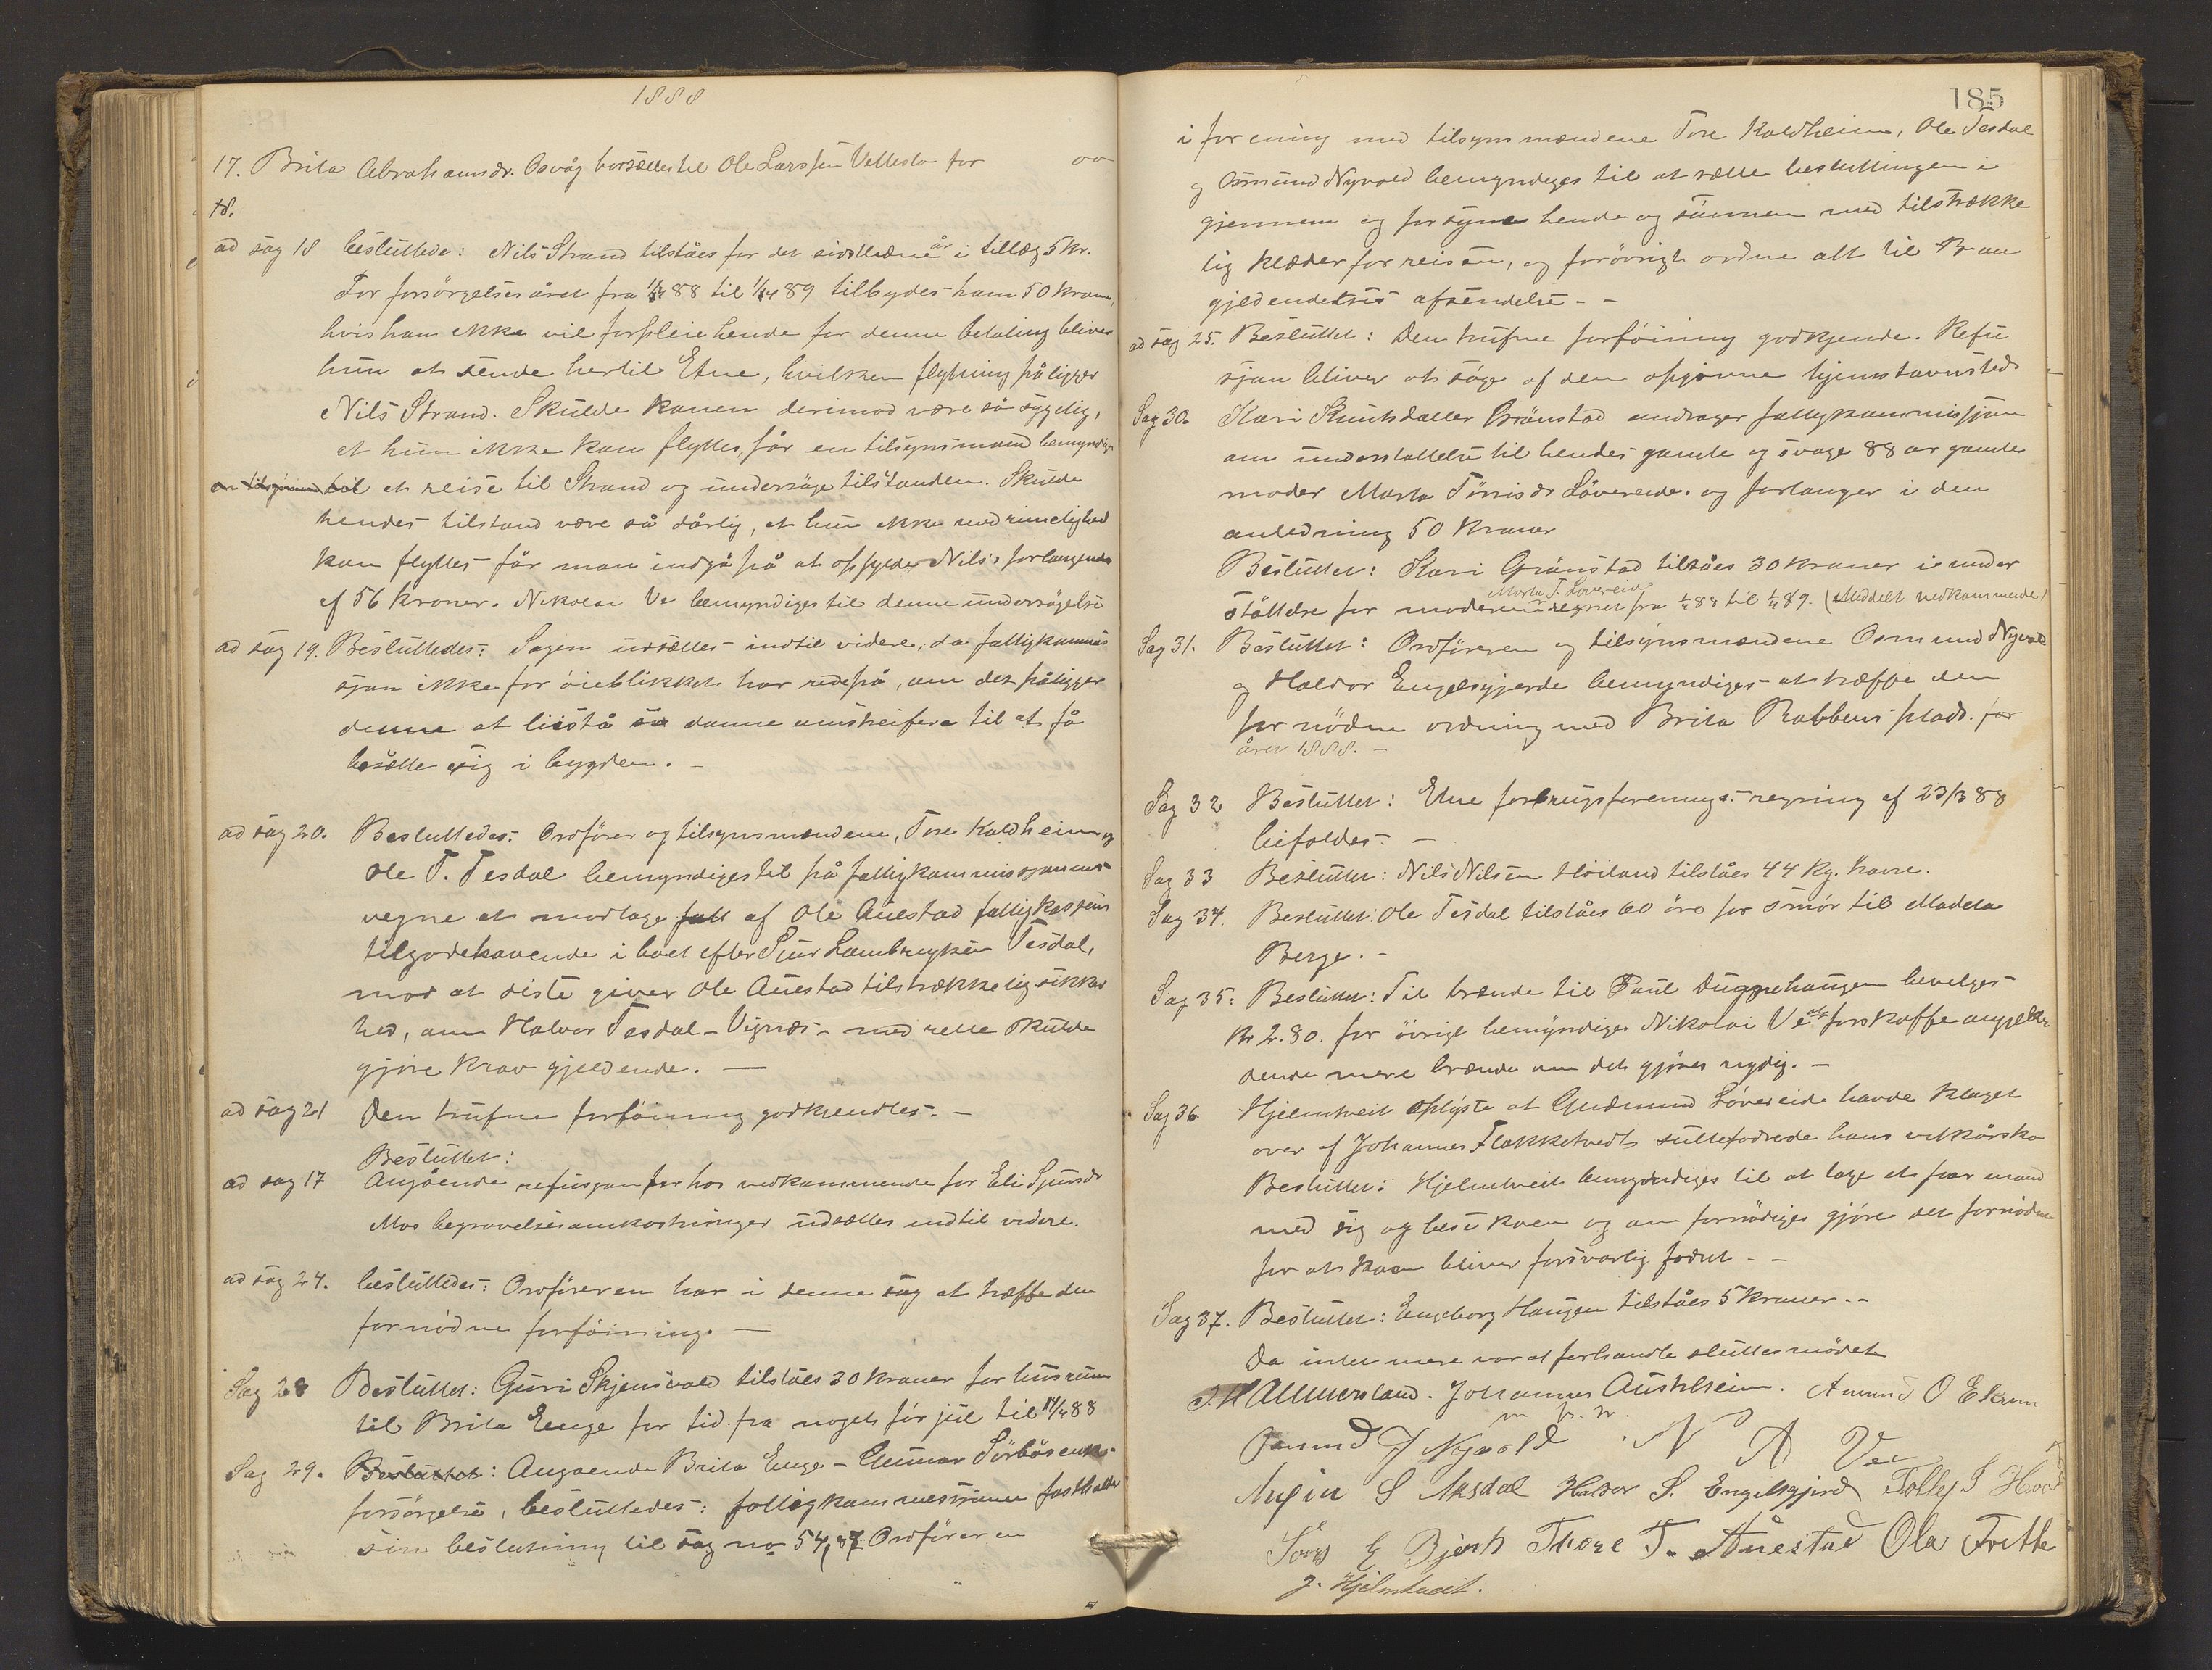 1888
17. Brita Abrahamsdr. Osvåg borsættes til Ole Larssen Velleslo for 00
18.
ad sag 18 besluttede: Nils Strand tilståes for det sidstledne år i tillæg 5 kr.
For forsörgelsesåret fra 1/4 88 til 1/4 89 tilbydes ham 50 kroner,
hvis han ikke vil forpleie hende for denne betaling bliver
hun at sende hertil Etne, hvilken flytning påligger
Nils Strand. Skulde konen derimod være så sygelig,
at hun ikke kan flyttes, får en tilsynsmand bemyndiges
til at reise til Strand og undersöge tilstanden. Skulde
hendes tilstand være så dårlig, at hun ikke med rimelighed
kan flyttes får man indgå på at opfylde Nils's forlangende
af 56 kroner. Nikolai Ve bemyndiges til denne undersögelse
ad sag 19. Besluttedes: Sagen udsættes indtil videre, da fattigkommis
sjon ikke for öieblikket har rede på, om det påligger
denne at bistå sådanne omstreifere til at få
bosætte sig i bygden. –
ad sag 20. Besluttedes: Ordförer og tilsynsmændene, Tore Kaldheim og
Ole T. Tesdal bemyndiges til på fattigkommissjonens
vegne at modtage af Ole Auestad fattigkassens
tilgodehavende i boet efter Sjur Lambrygken Tesdal,
mod at siste giver Ole Auestad tilstrækkelig sikker
hed, om Halvor Tesdal – Vignæs – med rette skulde
gjöre krav gjeldende. –
ad sag 21 Den trufne forföining godkjendtes. –
Besluttet:
ad sag 17 Angående refusjon for hos vedkommende for Eli Sjursdr
Mos begravelsesomkostninger udsættes indtil videre.
ad sag 24. besluttedes: Ordföreren har i denne sag at træffe den
fornödne forföining. –
Sag 28 Besluttet: Guri Skjensvold tilståes 30 kroner for husrum
til Brita Enge for tid fra noget för jul til 14/4 88
Sag 29. Besluttet: Angaende Brita Enge – Gunnar Sörböens
forsörgelse, besluttedes: fattigkommissionen fastholder
sin beslutning til sag no 54, 87. Ordföreren
185
i forening med tilsynsmændene Tore Kaldheim, Ole Tesdal
og Osmund Nyvold bemyndiges til at sætte beslutningen i
gjennem og forsyne hende og sönnen med tilstrække
lig klæder for reisen, og forövrigt ordne alt til
gjeldendes afsendelse. –
ad sag 25. Besluttet: Den trufne forföining godkjende. Refu
sjon bliver at söge af den opgivne hjemstavnsted
Sag 30. Kari Knutsdatter Grönstad andrager fattigkommissjon
om understøttelse til hendes gamle og svage 88 ar gamle
moder Marta Törrisdr Lövereide. og forlanger i den
anledning 50 kroner
Besluttet: Kari Grönstad tilståes 30 kroner i under
Marta T. Lövereide
stöttelse for moderen regnet fra 1/4 88 til 1/4 89. (Meddelt vedkommende)
Sag 31. Besluttet: Ordföreren og tilsynsmændene Osmund Nyvold
og Haldor Engelsgjerde bemyndiges at træffe den
for nödne ordning med Brita Rabbens plads. for
året 1888. –
Sag 32 Besluttet: Etne forbrugsforenings regning af 23/3 88
bifaldes. –
Sag 33 Besluttet: Nils Nilsen Höiland tilståes 44 kg. havre.
Sag 34. Besluttet: Ole Tesdal tilståes 60 öre for smör til Madela
Berge. –
Sag 35: Besluttet: Til brænde til Poul Duggehaugen bevelges
Kr 2.80. for övrigt bemyndiges Nikolai Ve at forskaffe angjel
dende mere brænde om det gjöres nydig. –
Sag 36 Hjelmtveit oplyste at Gudmund Lövereide havde klaget
over at Johannes Flakketvedt sultefodrede hans vilkårsko
Besluttet: Hjelmtveit bemyndiges til at tage et par mand
med sig og bese koen og om fornödiges gjöre det fornödne
for at koen bliver forsvarlig fodret. –
Sag 37. Besluttet: Engeborg Haugen tilståes 5 kroner. –
Da intet mere var at forhandle sluttes mödet
J. H Allmersland. Johannes Austrheim. Amund O Ekrem
m. p. p.
Osmund J Nyvold N A Ve
S Aksdal Haldor S. Engelsgjerd Tollef T
Sörr E Bjerk Thore T. Auestad Ola Frette
J. Hjelmtveit.